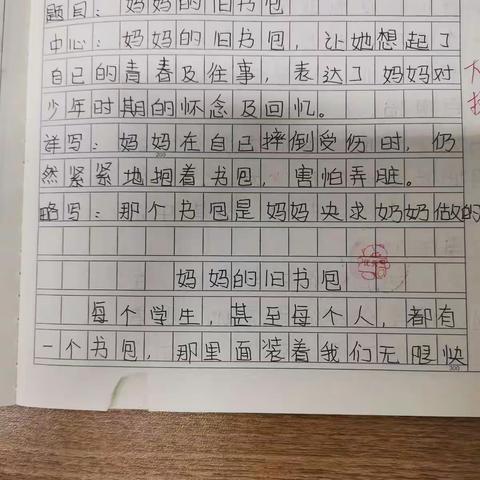 题目：妈妈的旧书包
中心：妈妈的旧书包，让她想起了
自己的青春及往事，表达了妈妈对
少年时期的怀念及回忆。
详写：妈妈在自己摔倒受伤时，仍
200
然紧紧地抱着书包，害怕弄脏。
略写：那个书包是妈妈央求奶奶做的
妈妈的旧书包
每个学生，甚至每个人，都有
一个书包，那里面装着我们无限快
300